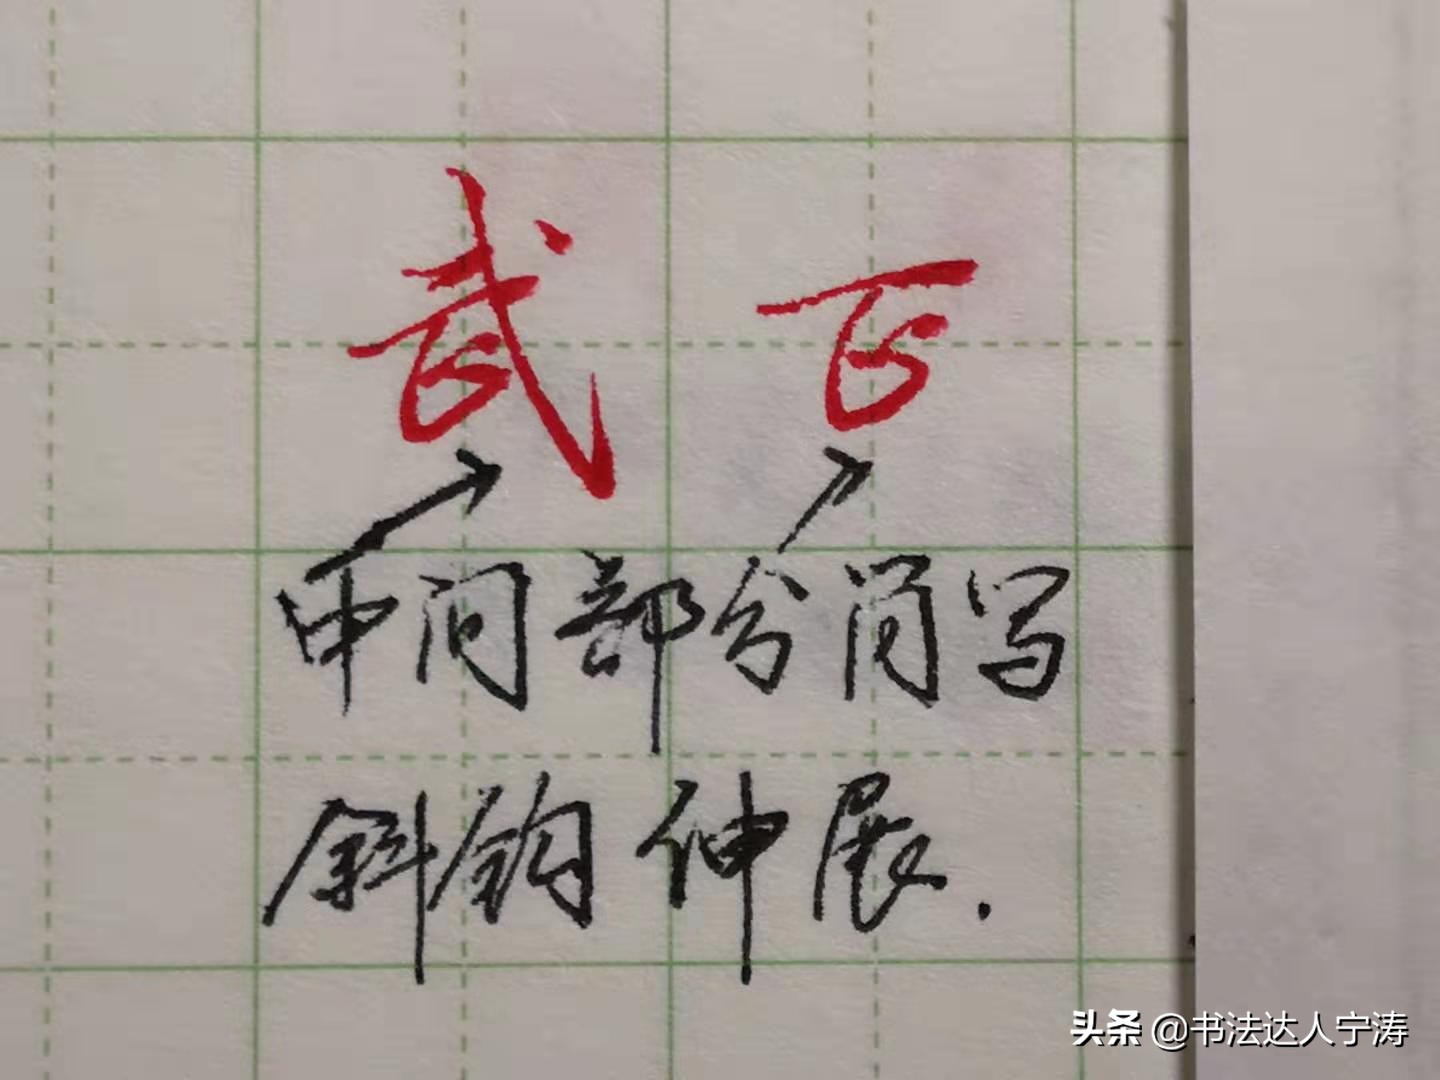 武
中间部分简写
斜钩伸展.
头条 @书法达人宁涛